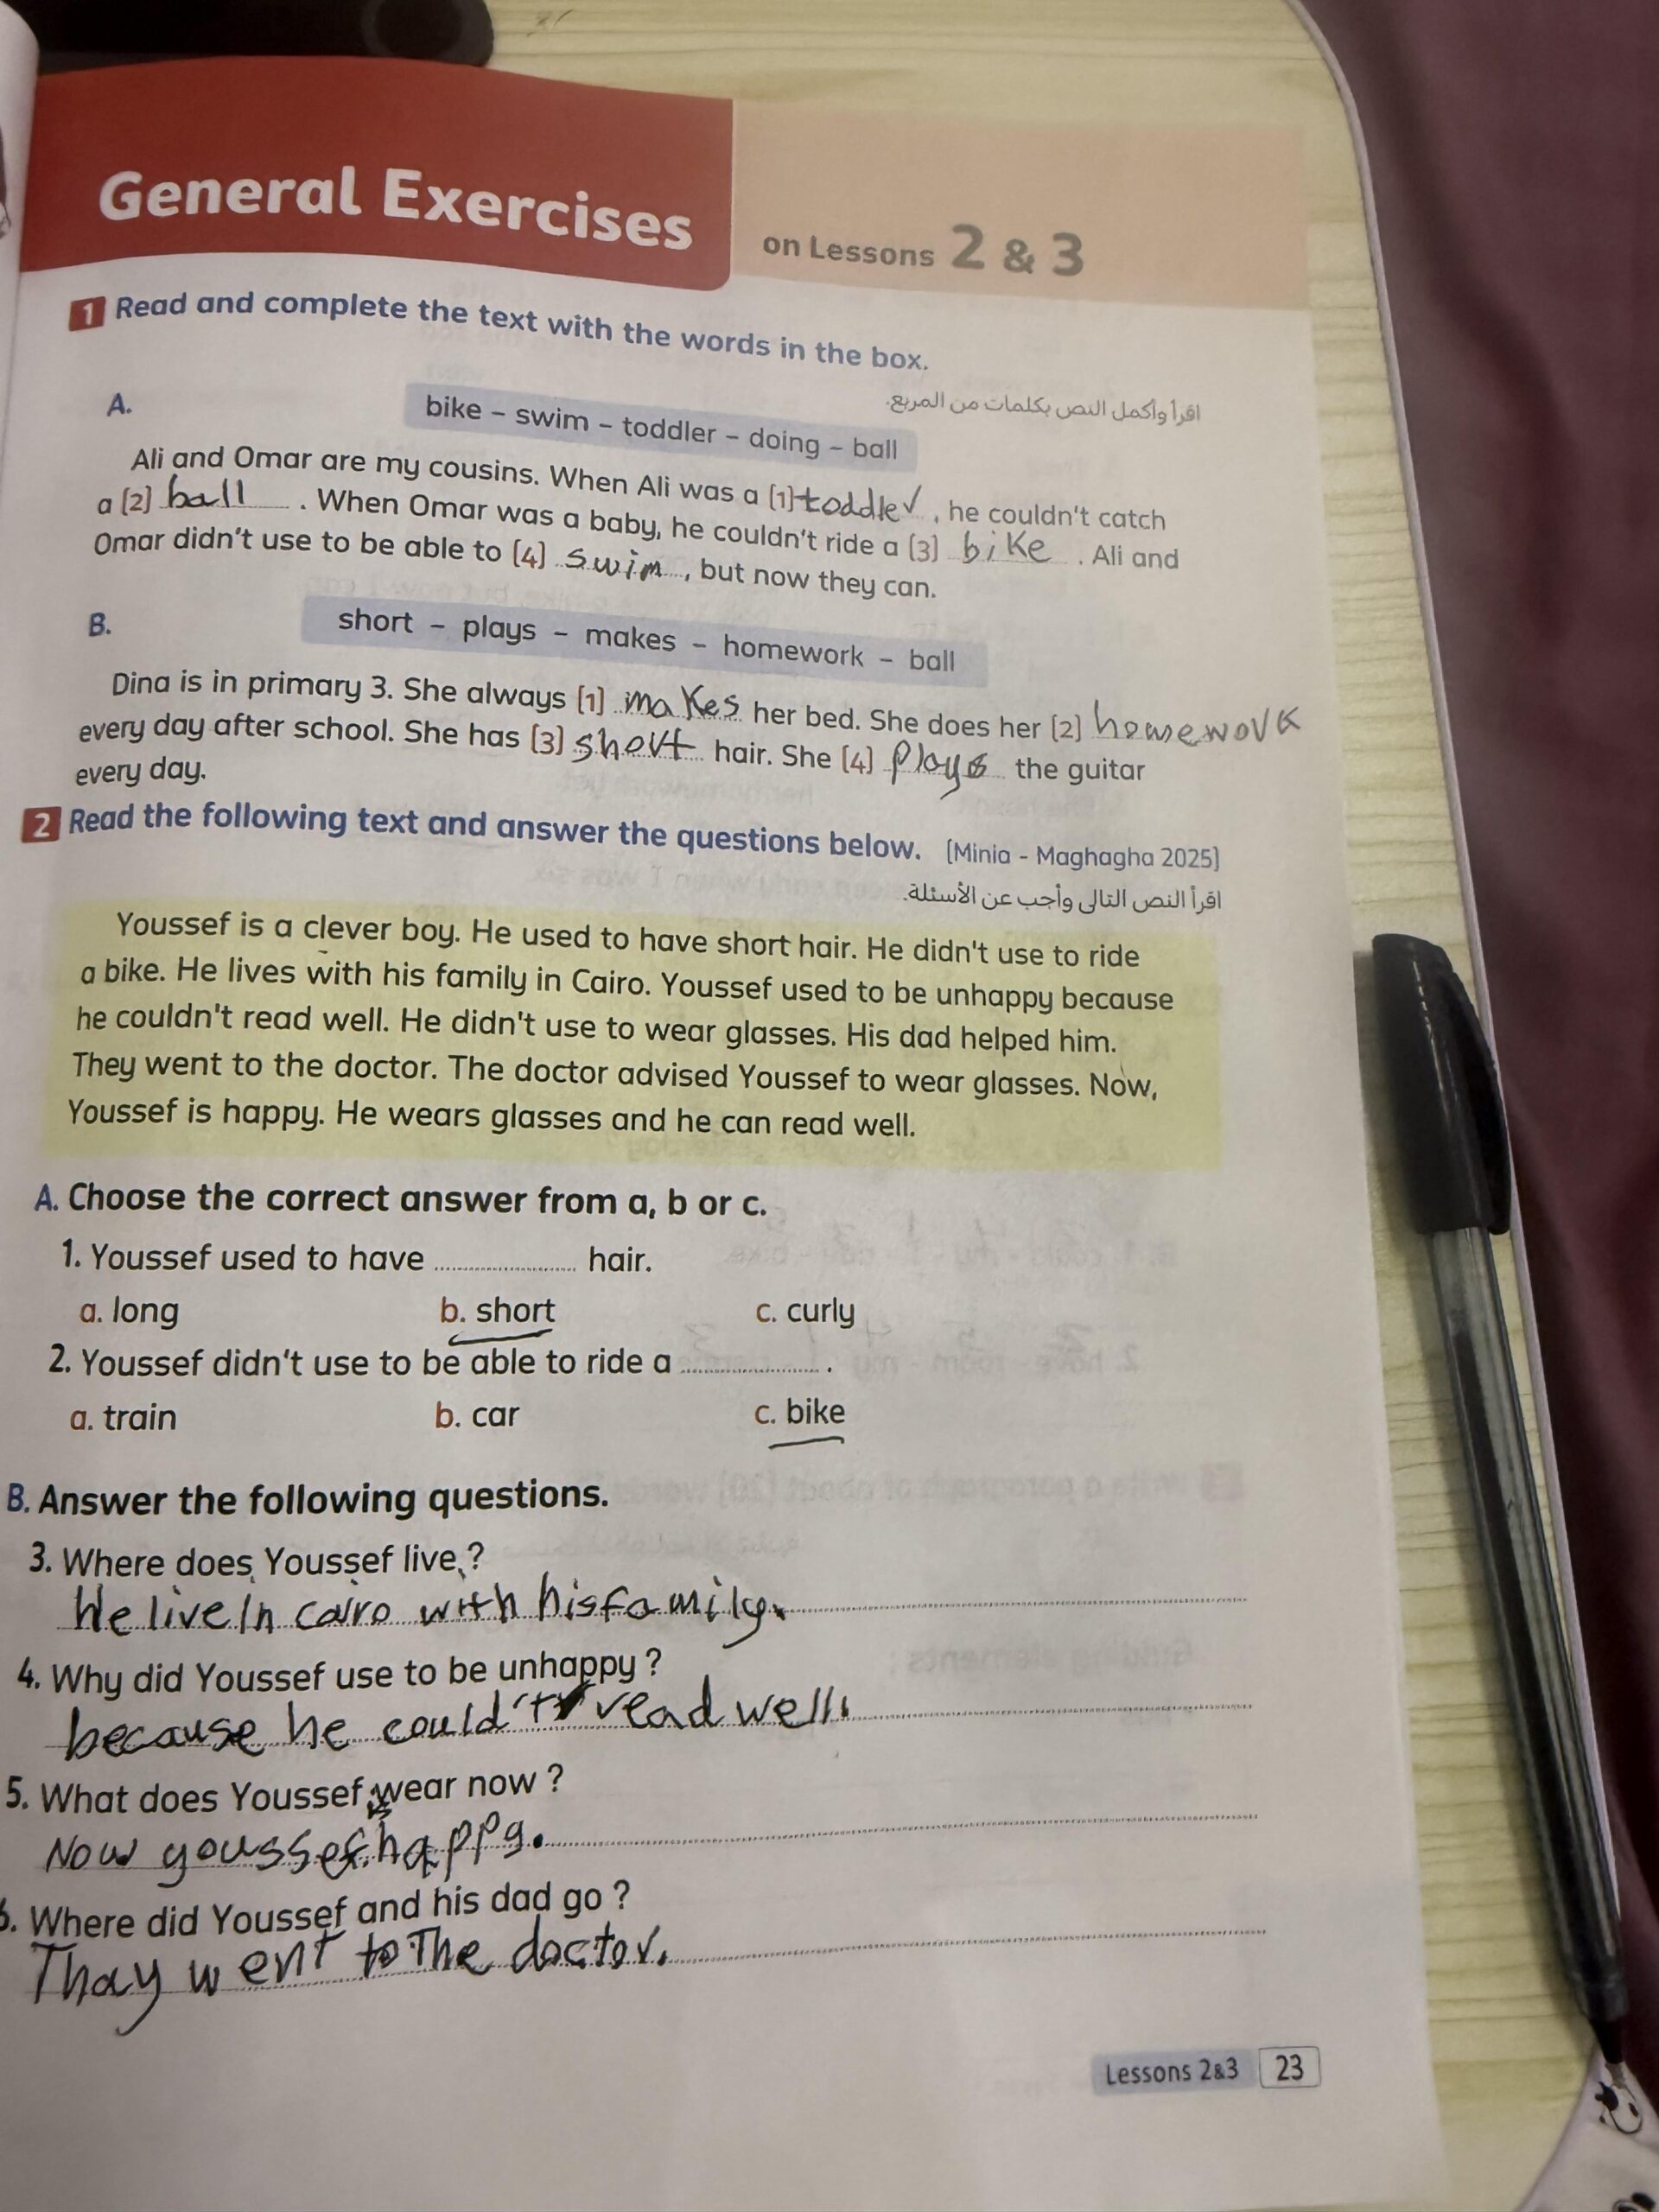 General Exercises on Lessons 2 & 3
1 Read and complete the text with the words in the box.
اقرأ وأكمل النص بكلمات من المربع.
A.
bike – swim – toddler – doing – ball
Ali and Omar are my cousins. When Ali was a (1) toddler, he couldn't catch
a (2) ball. When Omar was a baby, he couldn't ride a (3) bike. Ali and
Omar didn't use to be able to (4) swim, but now they can.
B.
short – plays – makes – homework – ball
Dina is in primary 3. She always (1) makes her bed. She does her (2) homework
every day after school. She has (3) short hair. She (4) plays the guitar
every day.
2 Read the following text and answer the questions below. (Minia - Maghagha 2025)
اقرأ النص التالى وأجب عن الأسئلة.
Youssef is a clever boy. He used to have short hair. He didn't use to ride
a bike. He lives with his family in Cairo. Youssef used to be unhappy because
he couldn't read well. He didn't use to wear glasses. His dad helped him.
They went to the doctor. The doctor advised Youssef to wear glasses. Now,
Youssef is happy. He wears glasses and he can read well.
A. Choose the correct answer from a, b or c.
1. Youssef used to have .................... hair.
a. long b. short c. curly
2. Youssef didn't use to be able to ride a .................... .
a. train b. car c. bike
B. Answer the following questions.
3. Where does Youssef live ?
He live In cairo with his family.
4. Why did Youssef use to be unhappy ?
because he could't read well.
5. What does Youssef wear now ?
Now youssef is happy.
6. Where did Youssef and his dad go ?
Thay went to The doctor.
Lessons 2&3 23